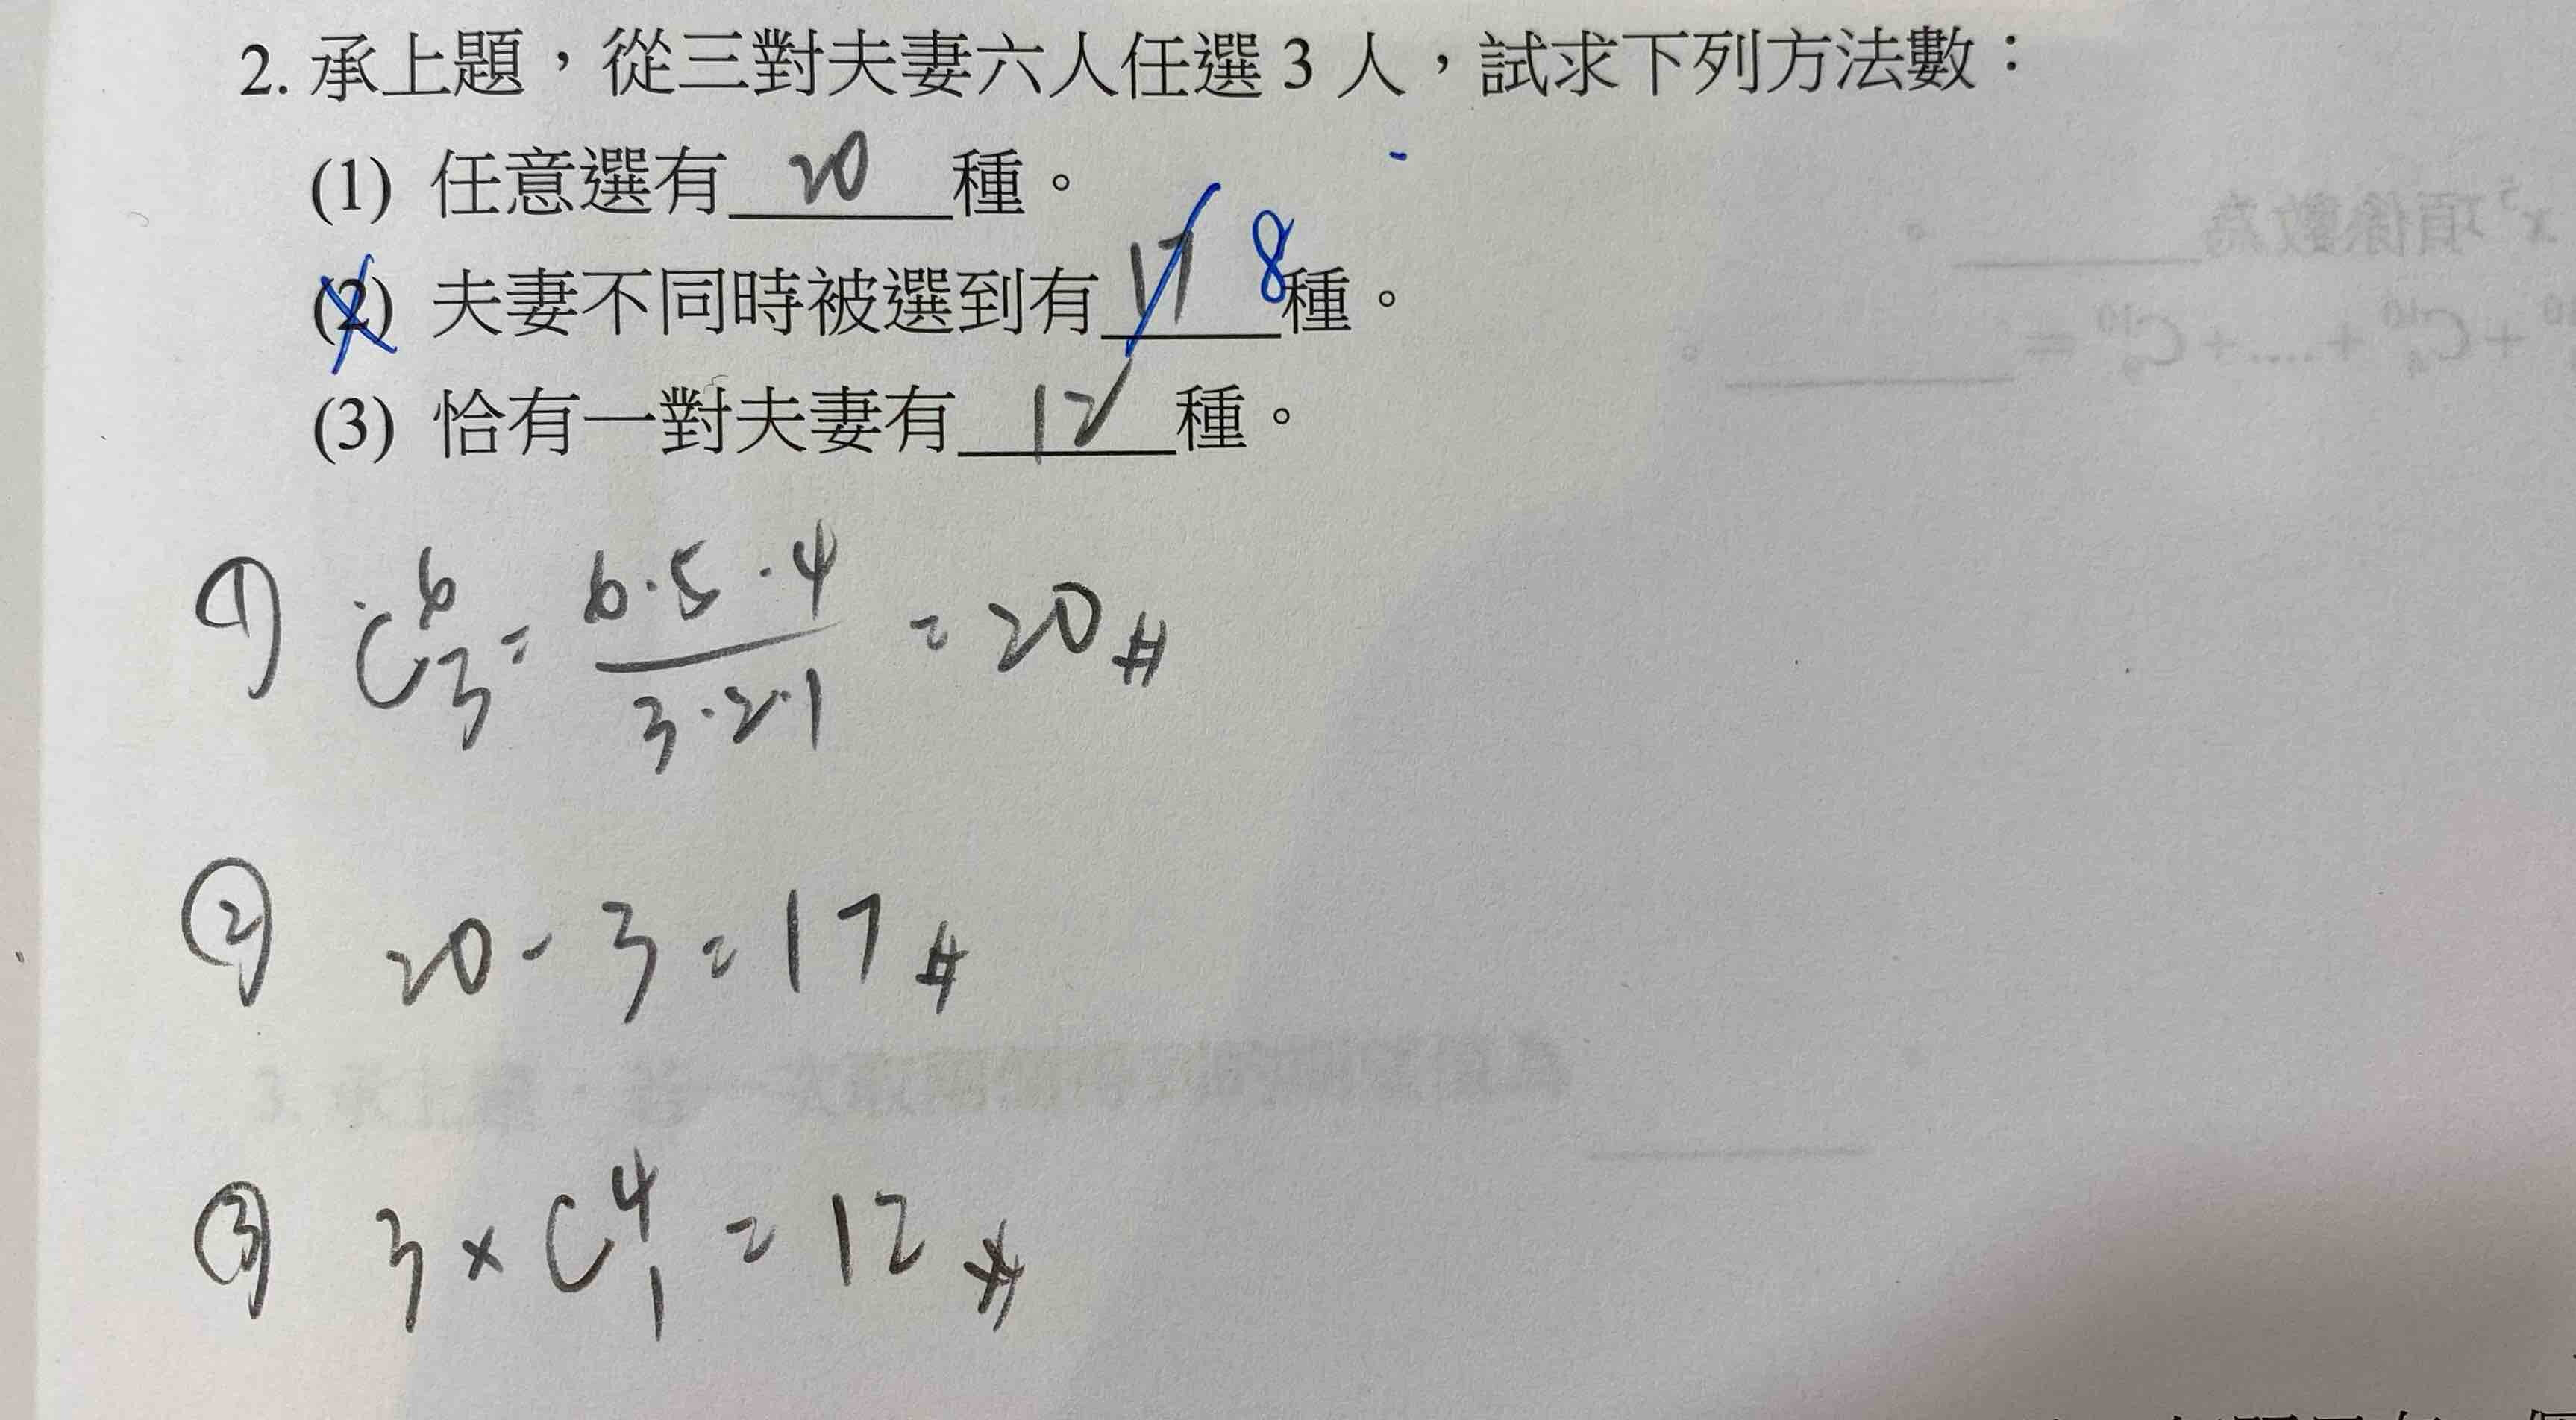 2. 承上題，從三對夫妻六人任選 3 人，試求下列方法數：
(1) 任意選有 20 種。
(2) 夫妻不同時被選到有 17 8 種。
(3) 恰有一對夫妻有 12 種。
① C⁶₃ = 6·5·4 / 3·2·1 = 20 #
② 20 - 3 = 17 #
③ 3 × C⁴₁ = 12 #